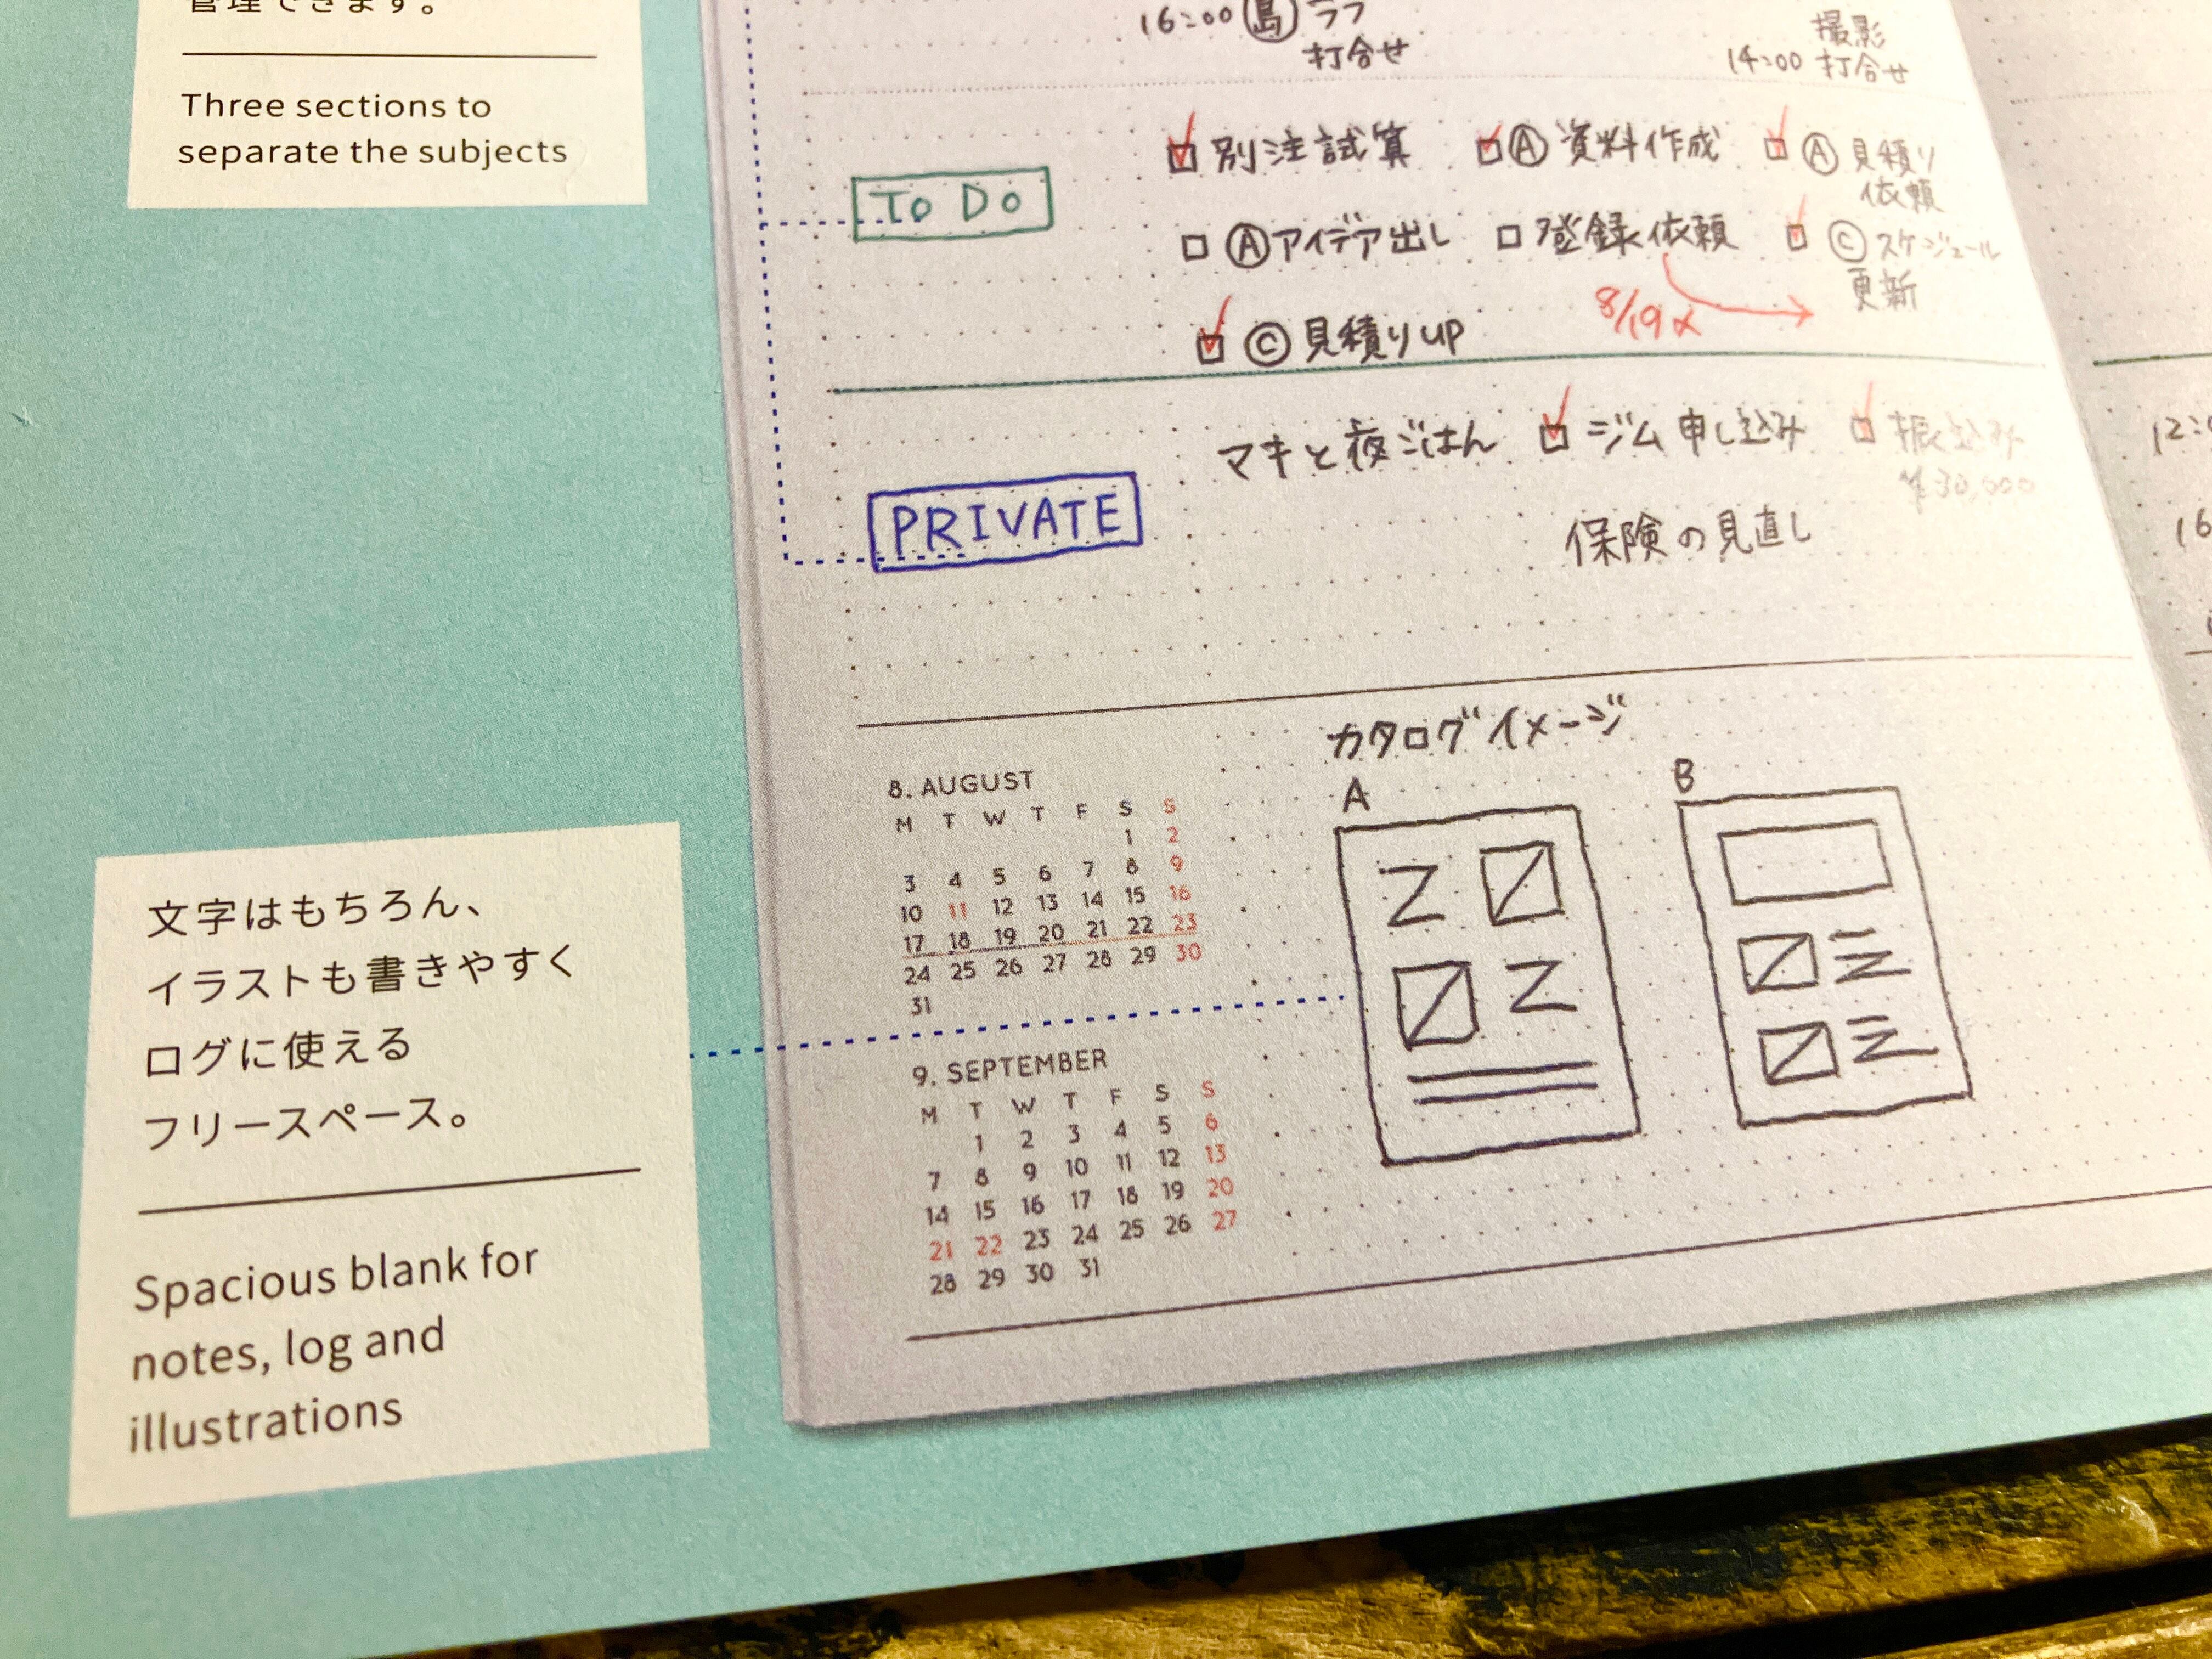 管理できます。
Three sections to
separate the subjects
16:00 島 ラフ
打合せ
撮影
14:00 打合せ
To Do
別注試算
Ⓐ 資料作成
Ⓐ 見積り
依頼
Ⓐ アイデア出し
登録依頼
Ⓒ スケジュール
更新
8/19〆
Ⓒ 見積りUP
PRIVATE
マキと夜ごはん
ジム申し込み
振込み
¥30,000
保険の見直し
8. AUGUST
M T W T F S S
1 2
3 4 5 6 7 8 9
10 11 12 13 14 15 16
17 18 19 20 21 22 23
24 25 26 27 28 29 30
31
9. SEPTEMBER
M T W T F S S
1 2 3 4 5 6
7 8 9 10 11 12 13
14 15 16 17 18 19 20
21 22 23 24 25 26 27
28 29 30 31
カタログイメージ
A
B
文字はもちろん、
イラストも書きやすく
ログに使える
フリースペース。
Spacious blank for
notes, log and
illustrations